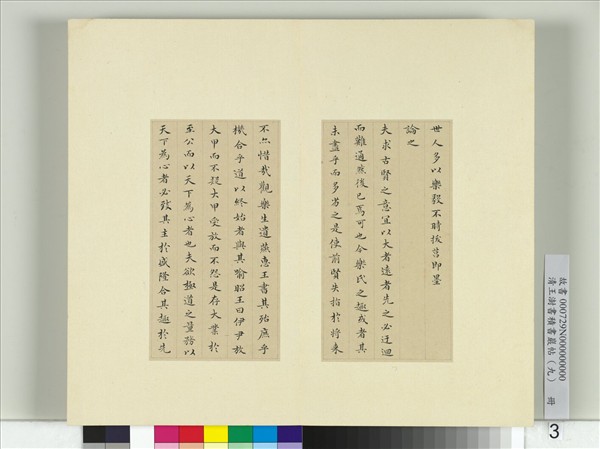 世人多以樂毅不時拔莒即墨
論之
夫求古賢之意宜以大者遠者先之必迂迴
而難通然後已焉可也今樂氏之趣或者其
未盡乎而多劣之是使前賢失指於將來
不亦惜哉觀樂生遺燕惠王書其殆庶乎
機合乎道以終始者與其喻昭王曰伊尹放
大甲而不疑大甲受放而不怨是存大業於
至公而以天下為心者也夫欲極道之量務以
天下為心者必致其主於盛隆合其趣於先
故書 000729N000000000
清王澍書積書巖帖（九） 冊
3